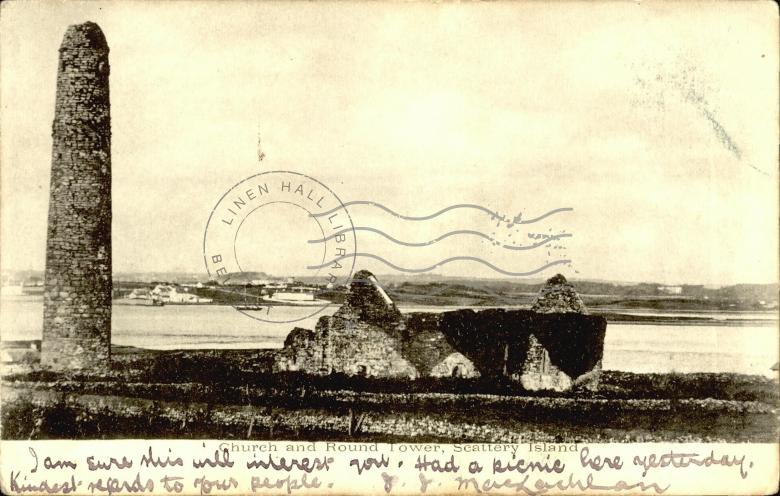 LINEN HALL LIBRARY
Church and Round Tower, Scattery Island
I am sure this will interest you. Had a picnic here yesterday.
Kindest regards to your people. J. J. MacLachlan